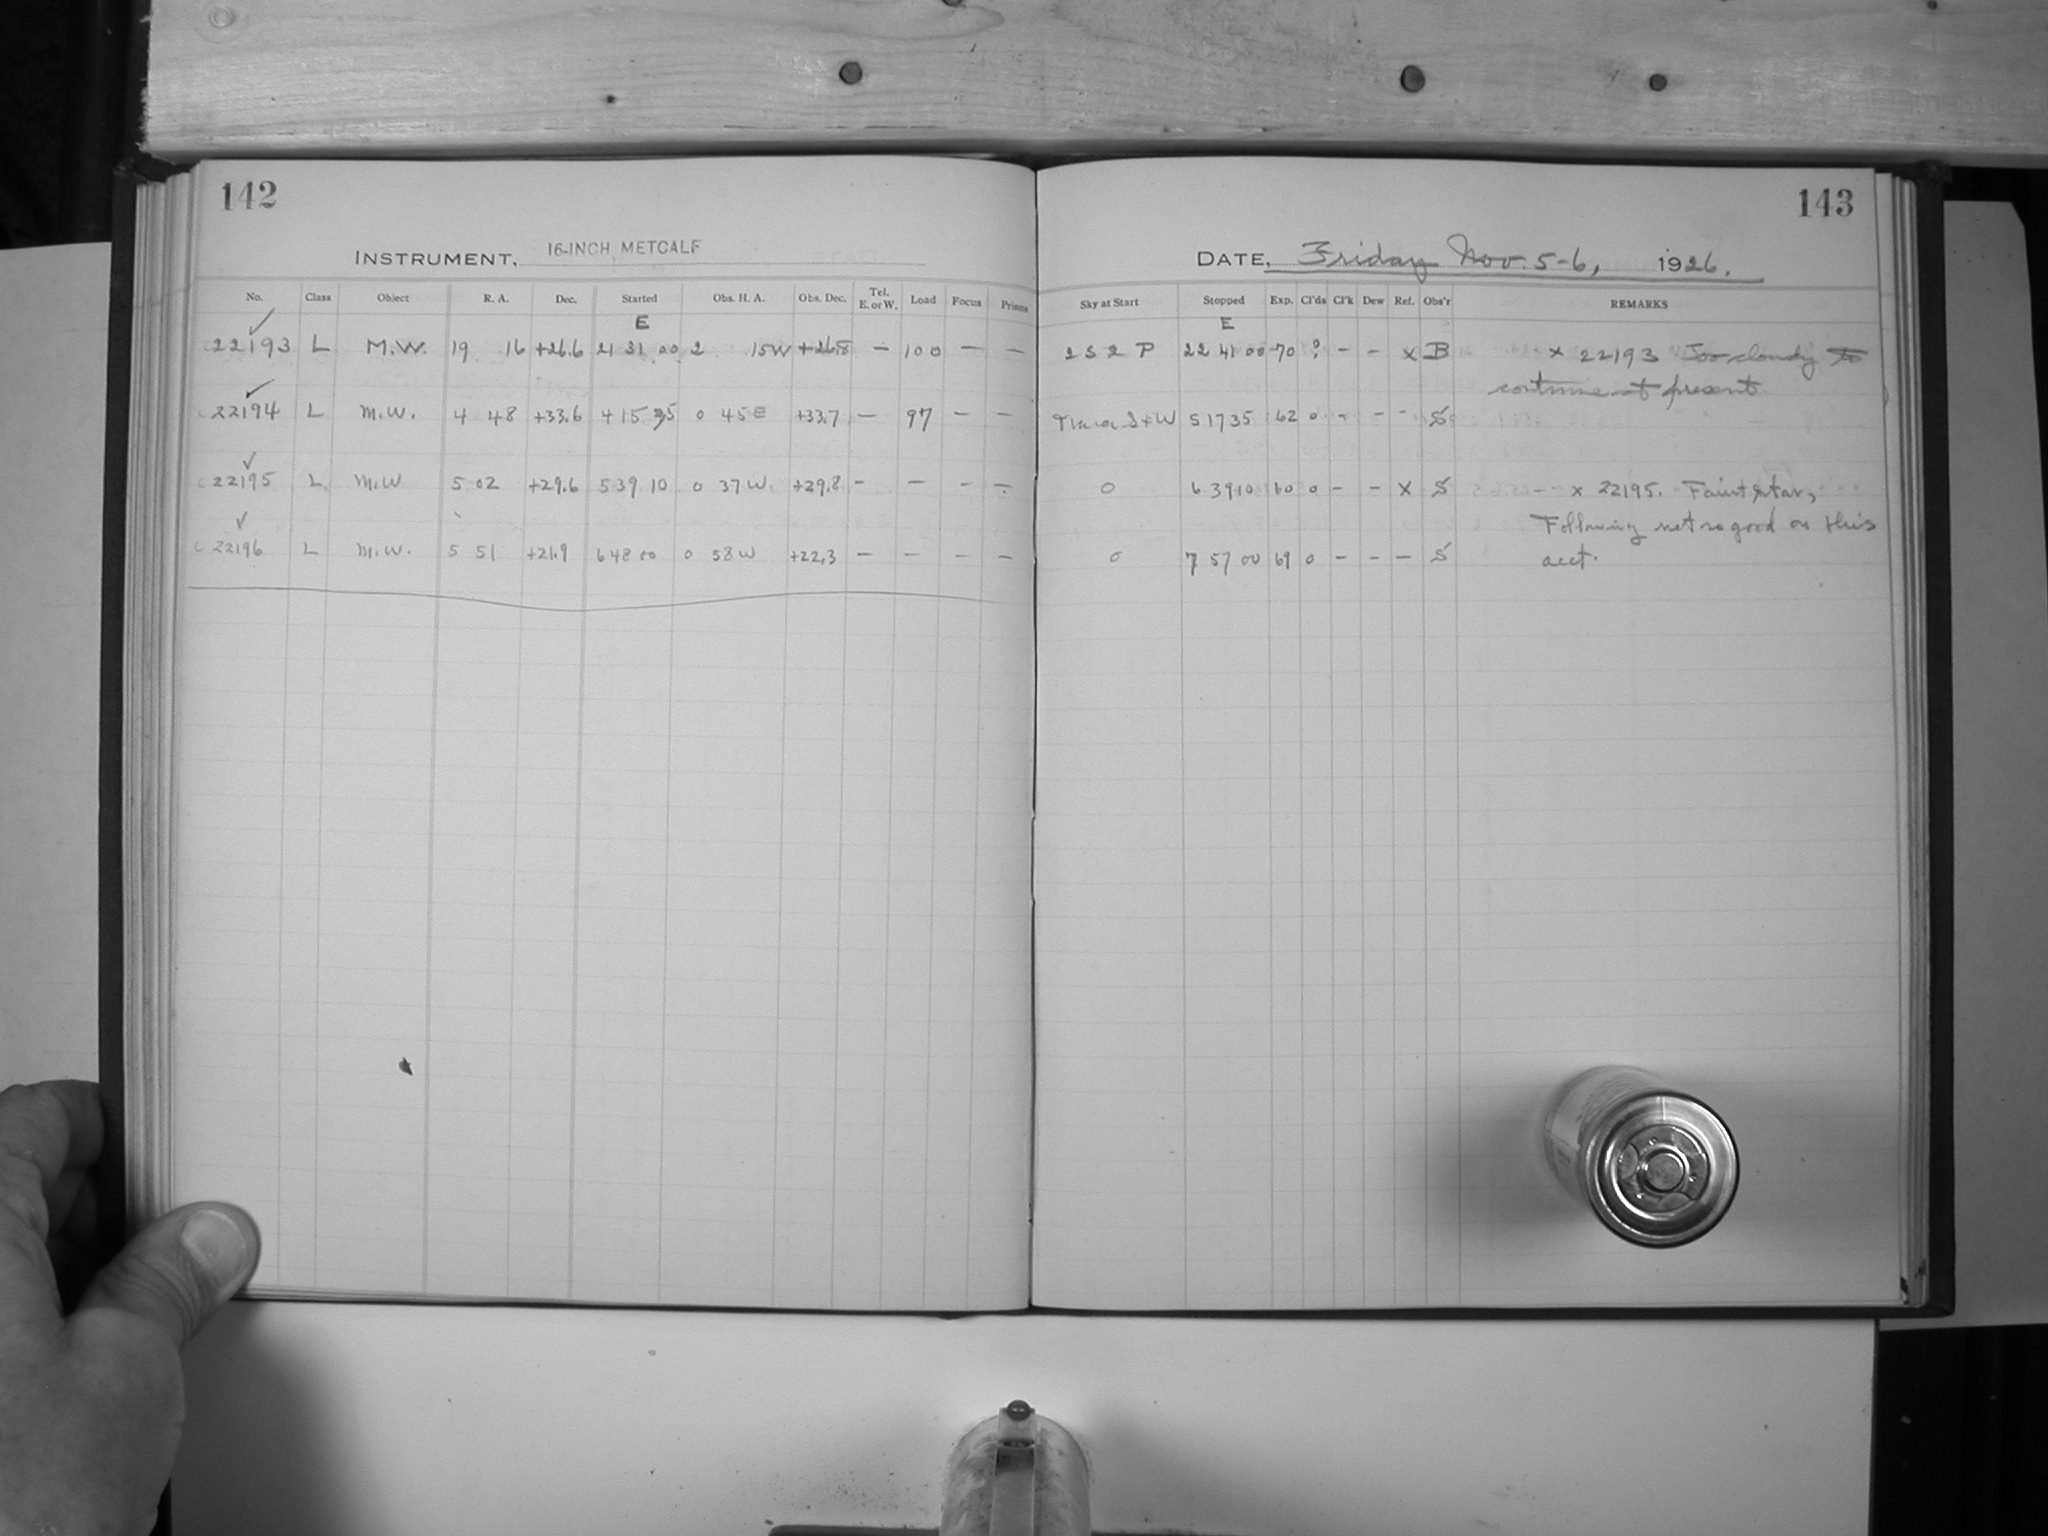 142
INSTRUMENT, 16-INCH METCALF
No. Class Object R. A. Dec. Started Obs. H. A. Obs. Dec. Tel. E. or W. Load Focus Prisms
E
22193 L M.W. 19 16 +26.6 21 31 00 2 15W +26.8 — 100 — —
22194 L M.W. 4 48 +33.6 4 15 35 0 45E +33.7 — 97 — —
22195 L. M.W 5 02 +29.6 5 39 10 0 37W. +29.8 — — — —
22196 L M.W. 5 51 +21.9 6 48 00 0 58W +22.3 — — — —
143
DATE, Friday Nov. 5-6, 1926.
Sky at Start Stopped Exp. Cl'ds Cl'k Dew Ref. Obs'r REMARKS
E
2 S 2 P 22 41 00 70 ? — — x B x 22193 Too cloudy to
continue at present
S+W 5 17 35 62 0 - - - S
0 6 39 10 60 0 — — x S x 22195. Faint star,
Following not so good on this
0 7 57 00 69 0 — — — S acct.